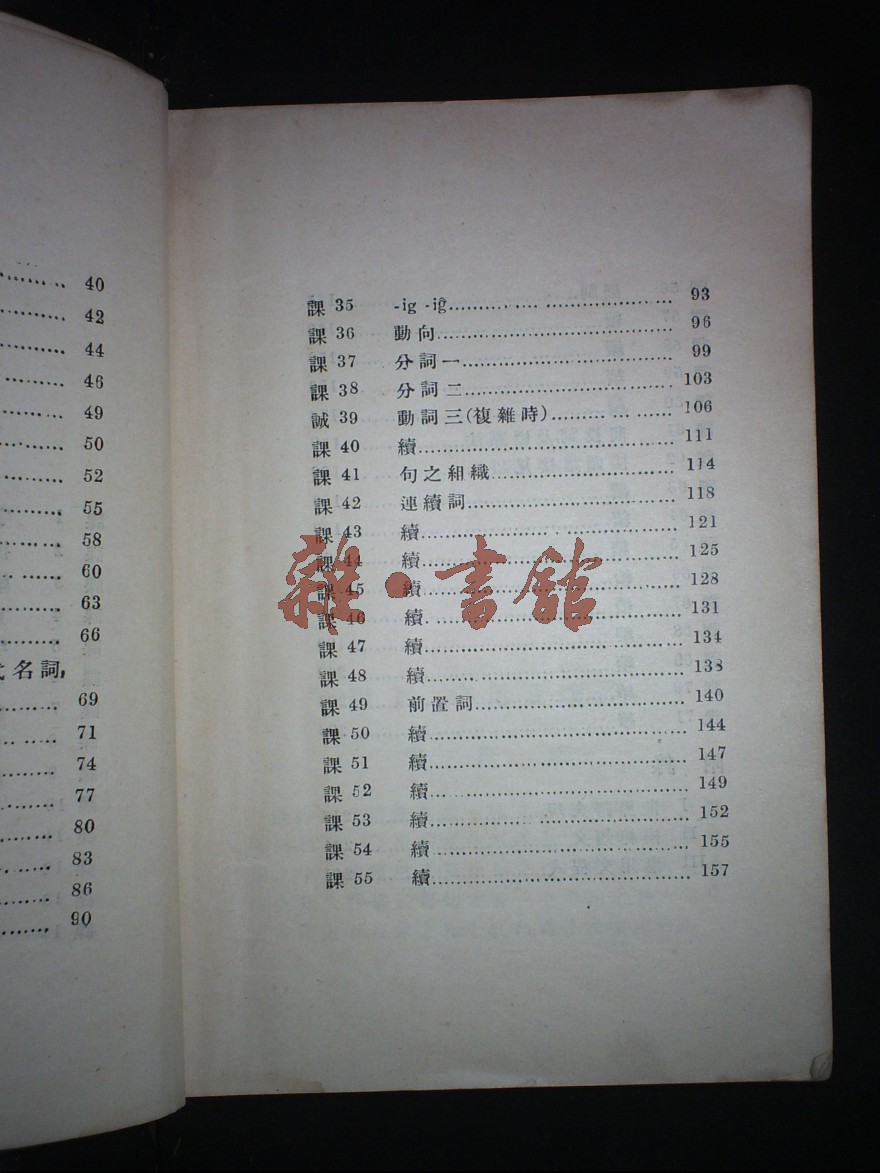 40
42
44
46
49
50
52
55
58
60
63
66
名詞,
69
71
74
77
80
83
86
90
課 35 -ig -iĝ 93
課 36 動向 96
課 37 分詞一 99
課 38 分詞二 103
誠 39 動詞三(複雜時) 106
課 40 續 111
課 41 句之組織 114
課 42 連續詞 118
課 43 續 121
課 44 續 125
課 45 續 128
課 46 續 131
課 47 續 134
課 48 續 138
課 49 前置詞 140
課 50 續 144
課 51 續 147
課 52 續 149
課 53 續 152
課 54 續 155
課 55 續 157
雜·書館